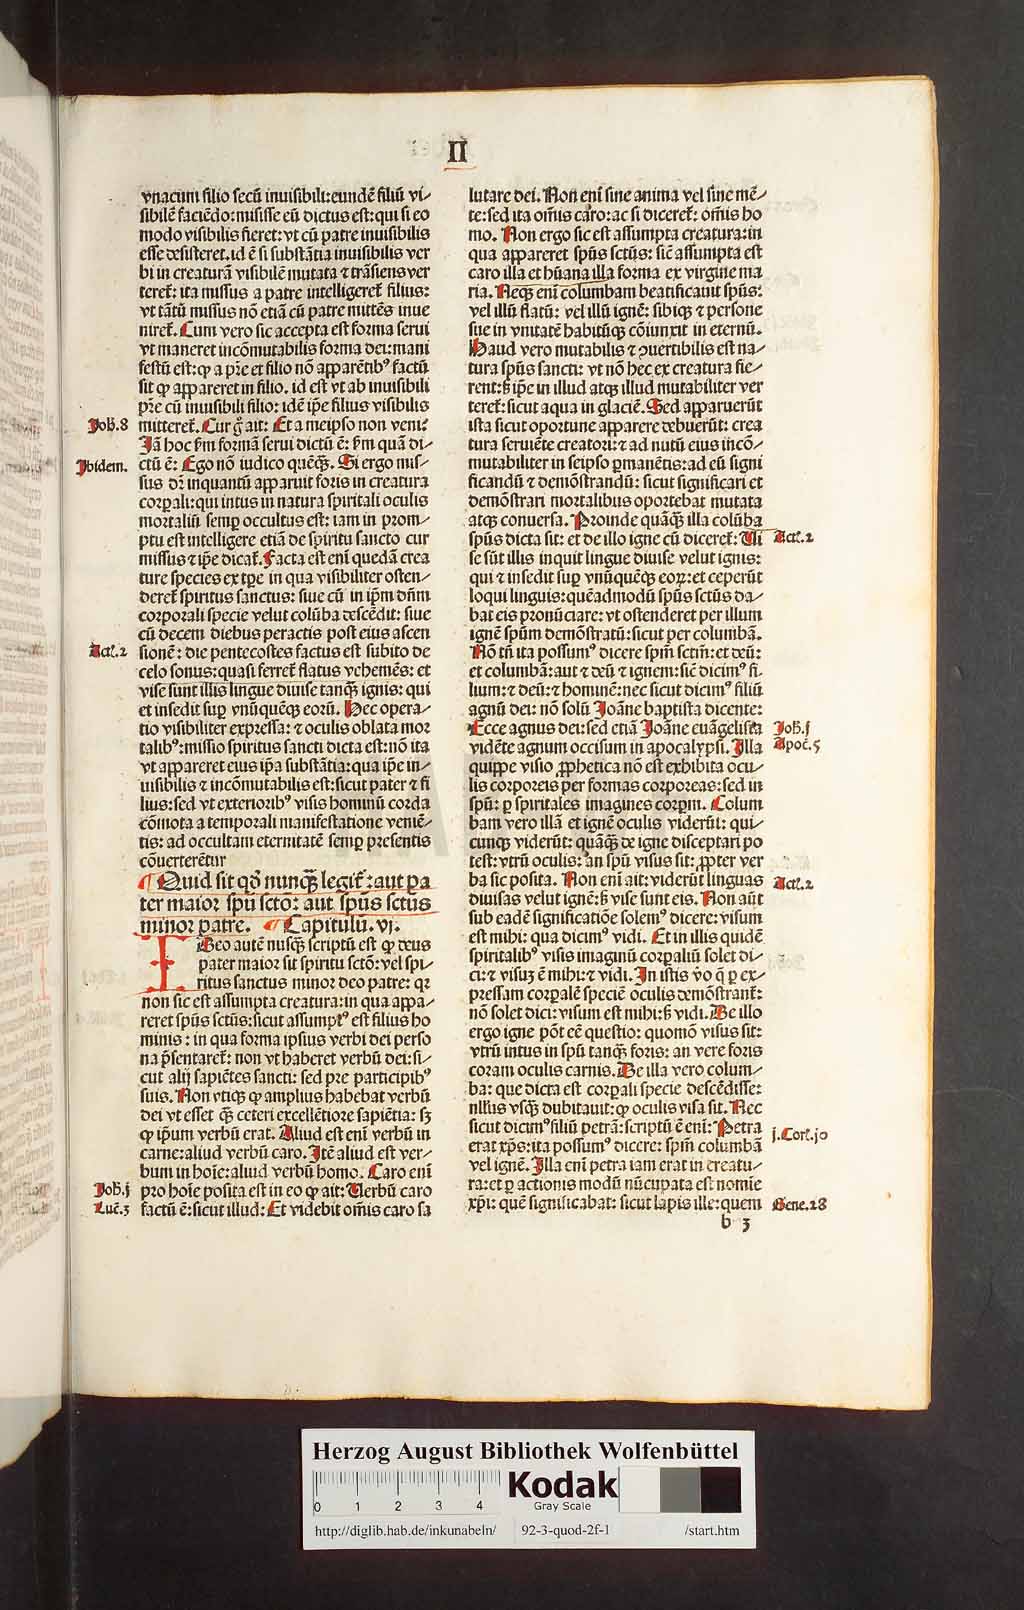 II
vnacum filio secũ inuisibili: eundẽ filiũ vi⸗
sibilẽ faciẽdo: misisse eũ dictus est: qui si eo
modo visibilis fieret: vt cũ patre inuisibilis
esse desisteret. id ẽ si substãtia inuisibilis ver
bi in creaturã visibilẽ mutata ⁊ trãsiens ver
teret᷑: ita missus a patre intelligeret᷑ filius:
vt tãtũ missus nõ etiã cũ patre mittẽs inue
niret᷑. Cum vero sic accepta est forma serui
vt maneret incõmutabilis forma dei: mani
festũ est: ꝙ a p̃re et filio nõ apparẽtibꝰ factũ
sit ꝙ appareret in filio. id est vt ab inuisibili
p̃re cũ inuisibili filio: idẽ ip̃e filius visibilis
Joh. 8 mitteret᷑. Cur g̊ ait: Et a meipso non veni?
Jã hoc ẜm formã serui dictũ ẽ: ẜm quã di⸗
Jbidem. ctũ ẽ: Ego nõ iudico quẽq̃. Si ergo mis⸗
sus dr̃ inquantũ apparuit foris in creatura
corꝑali: qui intus in natura spiritali oculis
mortaliũ semꝑ occultus est: iam in prom⸗
ptu est intelligere etiã de spiritu sancto cur
missus ⁊ ip̃e dicat᷑. Facta est eni᷑ quedã crea
ture species ex tp̃e in qua visibiliter osten⸗
deret᷑ spiritus sanctus: siue cũ in ip̃m dñm
corporali specie velut colũba descẽdit: siue
cũ decem diebus peractis post eius ascen
Act. 2 sionẽ: die pentecostes factus est subito de
celo sonus: quasi ferret᷑ flatus vehemẽs: et
vise sunt illis lingue diuise tanq̃ ignis: qui
et insedit suꝑ vnũquẽqꝫ eorũ. Hec opera⸗
tio visibiliter expressa: ⁊ oculis oblata mor
talibꝰ: missio spiritus sancti dicta est: nõ ita
vt appareret eius ip̃a substãtia: qua ip̃e in⸗
uisibilis ⁊ incõmutabilis est: sicut pater ⁊ fi
lius: sed vt exterioribꝰ visis hominũ corda
cõmota a temporali manifestatione veniẽ⸗
tis: ad occultam eternitatẽ semꝑ presentis
cõuerterẽtur
¶ Quid sit qđ nunq̃ legit᷑: aut pa
ter maior sp̃u sctõ: aut sp̃us sctũs
minor patre. ¶ Capitulũ. vi.
IDeo autẽ nusq̃ scriptũ est ꝙ deus
pater maior sit spiritu sctõ: vel spi⸗
ritus sanctus minor deo patre: qꝛ
non sic est assumpta creatura: in qua appa⸗
reret sp̃us sctũs: sicut assumptꝰ est filius ho
minis: in qua forma ipsius verbi dei perso
na p̃sentaret᷑: non vt haberet verbũ dei: si⸗
cut alij sapiẽtes sancti: sed pre participibꝰ
suis. Non vtiqꝫ ꝙ amplius habebat verbũ
dei vt esset q̃ ceteri excellẽtiore sapiẽtia: sꝫ
ꝙ ip̃um verbũ erat. Aliud est eni᷑ verbũ in
carne: aliud verbũ caro. Jtẽ aliud est ver⸗
bum in hoĩe: aliud verbũ homo. Caro eni᷑
Joh. j pro hoĩe posita est in eo ꝙ ait: Verbũ caro
Luc. 3 factũ ẽ: sicut illud: Et videbit om̃is caro sa
lutare dei. Non eni᷑ sine anima vel sine mẽ⸗
te: sed ita om̃is caro: ac si diceret᷑: om̃is ho
mo. Non ergo sic est assumpta creatura: in
qua appareret sp̃us sctũs: sic̃ assumpta est
caro illa et hũana illa forma ex virgine ma
ria. Neqꝫ eni᷑ columbam beatificauit sp̃us:
vel illũ flatũ: vel illũ ignẽ: sibiqꝫ ⁊ persone
sue in vnitatẽ habitũqꝫ cõiunxit in eternũ.
Haud vero mutabilis ⁊ ꝯuertibilis est na⸗
tura sp̃us sancti: vt nõ hec ex creatura fie⸗
rent: ẞ ip̃e in illud atqꝫ illud mutabiliter ver
teret᷑: sicut aqua in glaciẽ. Sed apparuerũt
ista sicut oportune apparere debuerũt: crea
tura seruiẽte creatori: ⁊ ad nutũ eius incõ⸗
mutabiliter in seipso ꝑmanẽtis: ad eũ signi
ficandũ ⁊ demõstrandũ: sicut significari et
demõstrari mortalibus oportebat mutata
atqꝫ conuersa. Proinde quãq̃ illa colũba
sp̃us dicta sit: et de illo igne cũ diceret᷑: Vi Act. 2
se sũt illis inquit lingue diuise velut ignis:
qui ⁊ insedit suꝑ vnũquẽqꝫ eoꝝ: et ceperũt
loqui linguis: quẽadmodũ sp̃us sctũs da⸗
bat eis pronũciare: vt ostenderet per illum
ignẽ sp̃um demõstratũ: sicut per columbã.
Nõ tñ ita possumꝰ dicere sp̃m sctm̃: et deũ:
et columbã: aut ⁊ deũ ⁊ ignem: sic̃ dicimꝰ fi⸗
lium: ⁊ deũ: ⁊ hominẽ: nec sicut dicimꝰ filiũ
agnũ dei: nõ solũ Joãne baptista dicente:
Ecce agnus dei: sed etiã Joãne euãgelista Joh. j
vidẽte agnum occisum in apocalypsi. Jlla Apoc. 5
quippe visio ꝓphetica nõ est exhibita ocu⸗
lis corporeis per formas corporeas: sed in
sp̃u: ꝑ spiritales imagines corpm. Colum
bam vero illã et ignẽ oculis viderũt: qui⸗
cunqꝫ viderũt: quãq̃ de igne disceptari po
test: vtrũ oculis: an sp̃u visus sit: ꝓpter ver
ba sic posita. Non eni᷑ ait: viderũt linguas Act. 2
diuisas velut ignẽ: ẞ vise sunt eis. Non aũt
sub eadẽ significatiõe solemꝰ dicere: visum
est mihi: qua dicimꝰ vidi. Et in illis quidẽ
spiritalibꝰ visis imaginũ corꝑaliũ solet di⸗
ci: ⁊ visuꝫ ẽ mihi: ⁊ vidi. Jn istis ṽo q̃ ꝑ ex⸗
pressam corꝑalẽ speciẽ oculis demõstrant᷑:
nõ solet dici: visum est mihi: ẞ vidi. De illo
ergo igne põt eẽ questio: quomõ visus sit:
vtrũ intus in sp̃u tanq̃ foris: an vere foris
coram oculis carnis. De illa vero colum⸗
ba: que dicta est corꝑali specie descẽdisse:
nullus vsq̃ dubitauit: ꝙ oculis visa sit. Nec
sicut dicimꝰ filiũ petrã: scriptũ ẽ eni᷑: Petra j. Cor. jo
erat xp̃s: ita possumꝰ dicere: sp̃m columbã
vel ignẽ. Jlla eni᷑ petra iam erat in creatu⸗
ra: et ꝑ actionis modũ nũcupata est nomĩe
xp̃i: quẽ significabat: sicut lapis ille: quem Gene. 28
b 3
Herzog August Bibliothek Wolfenbüttel
0 1 2 3 4
Kodak
Gray Scale
http://diglib.hab.de/inkunabeln/ 92-3-quod-2f-1 /start.htm